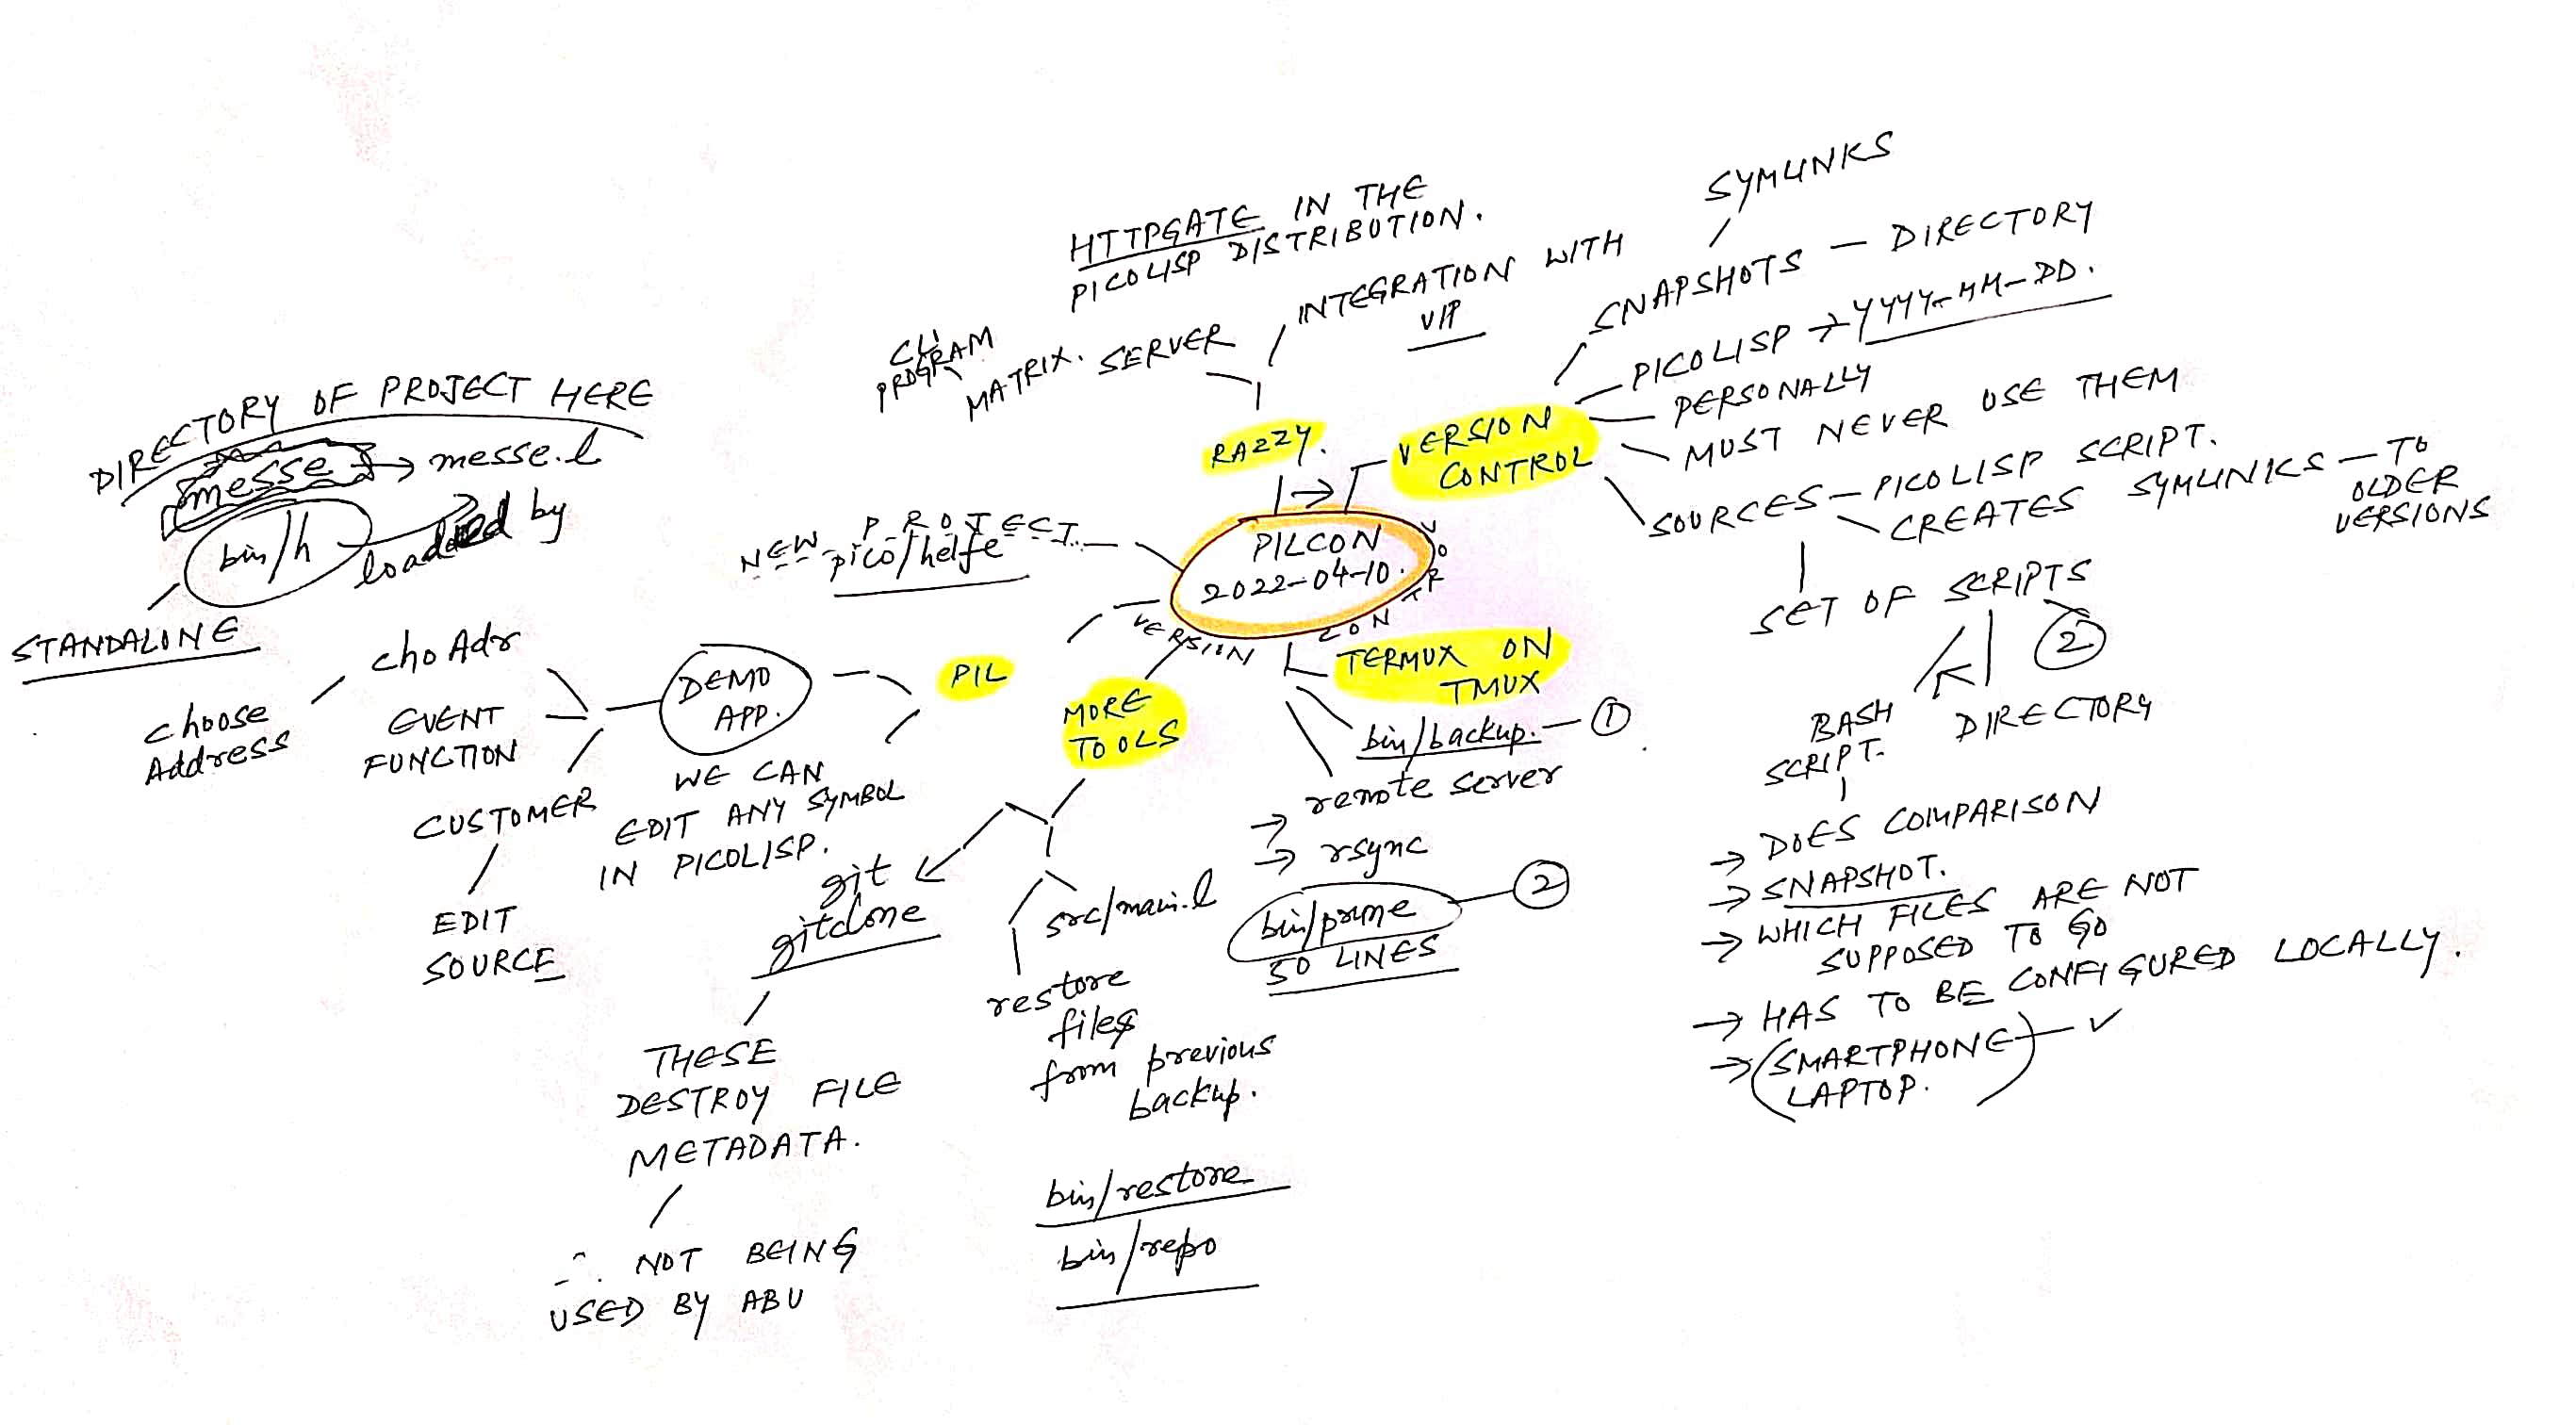 PILCON
2022-04-10.
VERSION CONTROL
RAZZY.
MATRIX. SERVER
CLI
PROGRAM
HTTPGATE IN THE
PICOLISP DISTRIBUTION.
INTEGRATION WITH
VIP
VERSION
CONTROL
SYMLINKS
SNAPSHOTS — DIRECTORY
PICOLISP → YYYY-MM-DD.
PERSONALLY
MUST NEVER USE THEM
SOURCES — PICOLISP SCRIPT.
CREATES SYMLINKS — TO
OLDER
VERSIONS
SET OF SCRIPTS
2
BASH
SCRIPT.
DIRECTORY
→ DOES COMPARISON
→ SNAPSHOT.
→ WHICH FILES ARE NOT
SUPPOSED TO GO
→ HAS TO BE CONFIGURED LOCALLY.
→ (SMARTPHONE) — ✓
LAPTOP.
TERMUX ON
TMUX
bin/backup. — 1
remote server
→
→ rsync
bin/prune — 2
50 LINES
MORE
TOOLS
src/main.l
restore
files
from previous
backup.
bin/restore
bin/repo
git
gitclone
THESE
DESTROY FILE
METADATA.
∴ NOT BEING
USED BY ABU
PIL
WE CAN
EDIT ANY SYMBOL
IN PICOLISP.
DEMO
APP.
choAdr
choose
Address
EVENT
FUNCTION
CUSTOMER
EDIT
SOURCE
NEW PROJECT
pico/helfe
DIRECTORY OF PROJECT HERE
messe → messe.l
bin/h loaded by
STANDALONE